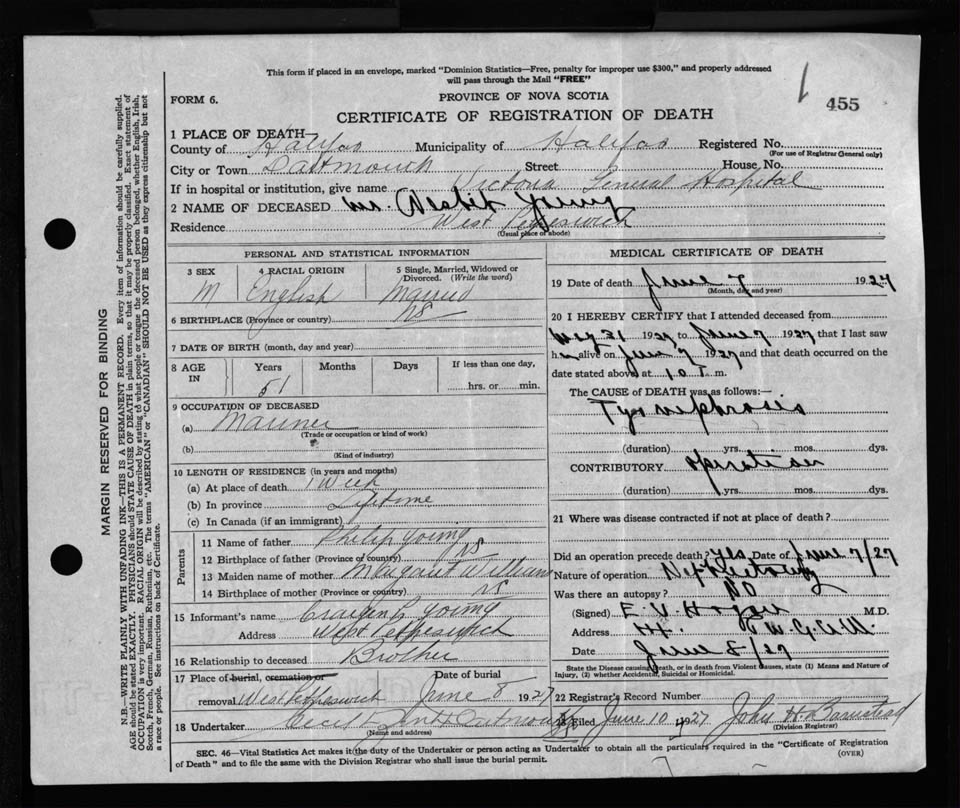 This form if placed in an envelope, marked "Dominion Statistics—Free, penalty for improper use $300," and properly addressed
will pass through the Mail "FREE"
FORM 6.
PROVINCE OF NOVA SCOTIA
455
CERTIFICATE OF REGISTRATION OF DEATH
1 PLACE OF DEATH—
County of Halifax Municipality of Halifax Registered No.
(For use of Registrar General only)
City or Town Dartmouth Street House No.
If in hospital or institution, give name Victoria General Hospital
2 NAME OF DECEASED Mr. Young
Residence West Petpeswick
(Usual place of abode)
PERSONAL AND STATISTICAL INFORMATION
3 SEX 4 RACIAL ORIGIN 5 Single, Married, Widowed or Divorced. (Write the word)
M English Married
6 BIRTHPLACE (Province or country) NS
7 DATE OF BIRTH (month, day and year)
8 AGE IN Years Months Days If less than one day,
51 hrs. or min.
9 OCCUPATION OF DECEASED
(a) Mariner
(Trade or occupation or kind of work)
(b)
(Kind of industry)
10 LENGTH OF RESIDENCE (in years and months)
(a) At place of death 1 Week
(b) In province Lifetime
(c) In Canada (if an immigrant)
Parents
11 Name of father Philip Young
12 Birthplace of father (Province or country) NS
13 Maiden name of mother Margaret Williams
14 Birthplace of mother (Province or country) NS
15 Informant's name Young
Address West Petpeswick
16 Relationship to deceased Brother
17 Place of burial, cremation or removal West Petpeswick Date of burial June 8 1927
18 Undertaker Dartmouth
(Name and address)
MEDICAL CERTIFICATE OF DEATH
19 Date of death June 7 1927
(Month, day and year)
20 I HEREBY CERTIFY that I attended deceased from
May 31 1927 to June 7 1927 that I last saw
him alive on June 7 1927 and that death occurred on the
date stated above at m.
The CAUSE of DEATH was as follows:—
Pyonephrosis
(duration) yrs. mos. dys.
CONTRIBUTORY operation
(duration) yrs. mos. dys.
21 Where was disease contracted if not at place of death?
Did an operation precede death? yes Date of June 7/27
Nature of operation Nephrectomy
Was there an autopsy? No
(Signed) E. V. Hogan M.D.
Address
Date June 8/27
State the Disease causing Death, or in death from Violent Causes, state (1) Means and Nature of
Injury, (2) whether Accidental, Suicidal or Homicidal.
22 Registrar's Record Number
Filed June 10 1927 John H. Barnstead
(Division Registrar)
SEC. 46—Vital Statistics Act makes it the duty of the Undertaker or person acting as Undertaker to obtain all the particulars required in the "Certificate of Registration
of Death" and to file the same with the Division Registrar who shall issue the burial permit.
(OVER)
MARGIN RESERVED FOR BINDING
N.B.—WRITE PLAINLY WITH UNFADING INK—THIS IS A PERMANENT RECORD. Every item of information should be carefully supplied.
AGE should be stated EXACTLY. PHYSICIANS should STATE CAUSE OF DEATH in plain terms, so that it may be properly classified. Exact statement of
OCCUPATION is very important. RACIAL ORIGIN will be described by stating to what people or tongue the deceased person belonged, whether English, Irish,
Scotch, French, German, Russian, Ruthenian, etc. The terms "AMERICAN" or "CANADIAN" SHOULD NOT BE USED as they express citizenship but not
a race or people. See instructions on back of Certificate.